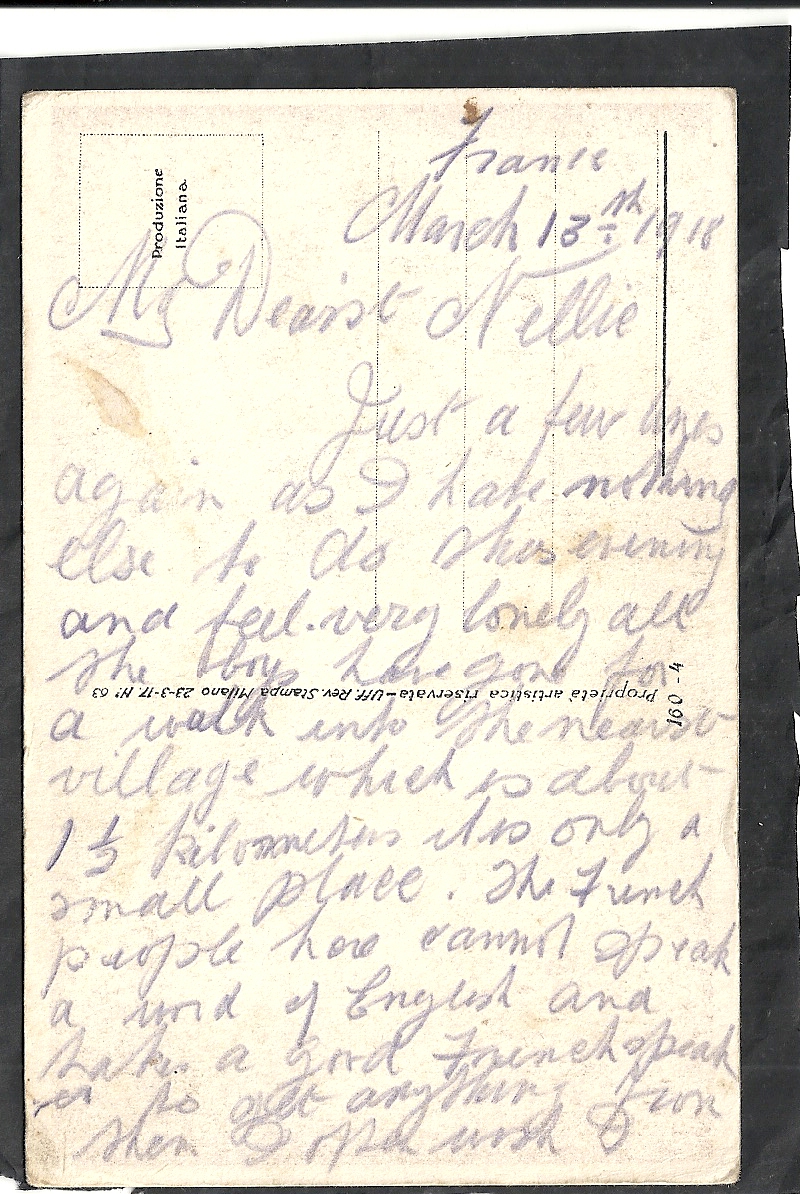 Produzione
Italiana.
France
March 13th 1918
My Dearist Nellie
Just a few lines
again as I have nothing
else to do this evening
and feel very lonely all
the boys have gone for
Proprietà artistica riservata - Uff. Rev. Stampa Milano 23-3-17. N° 63
160-4
a walk into the nearist
village which is about
1 ½ kilometers it is only a
small place. The French
people here cannot speak
a word of English and
takes a good French speak
er to get anything from
them I often wish I